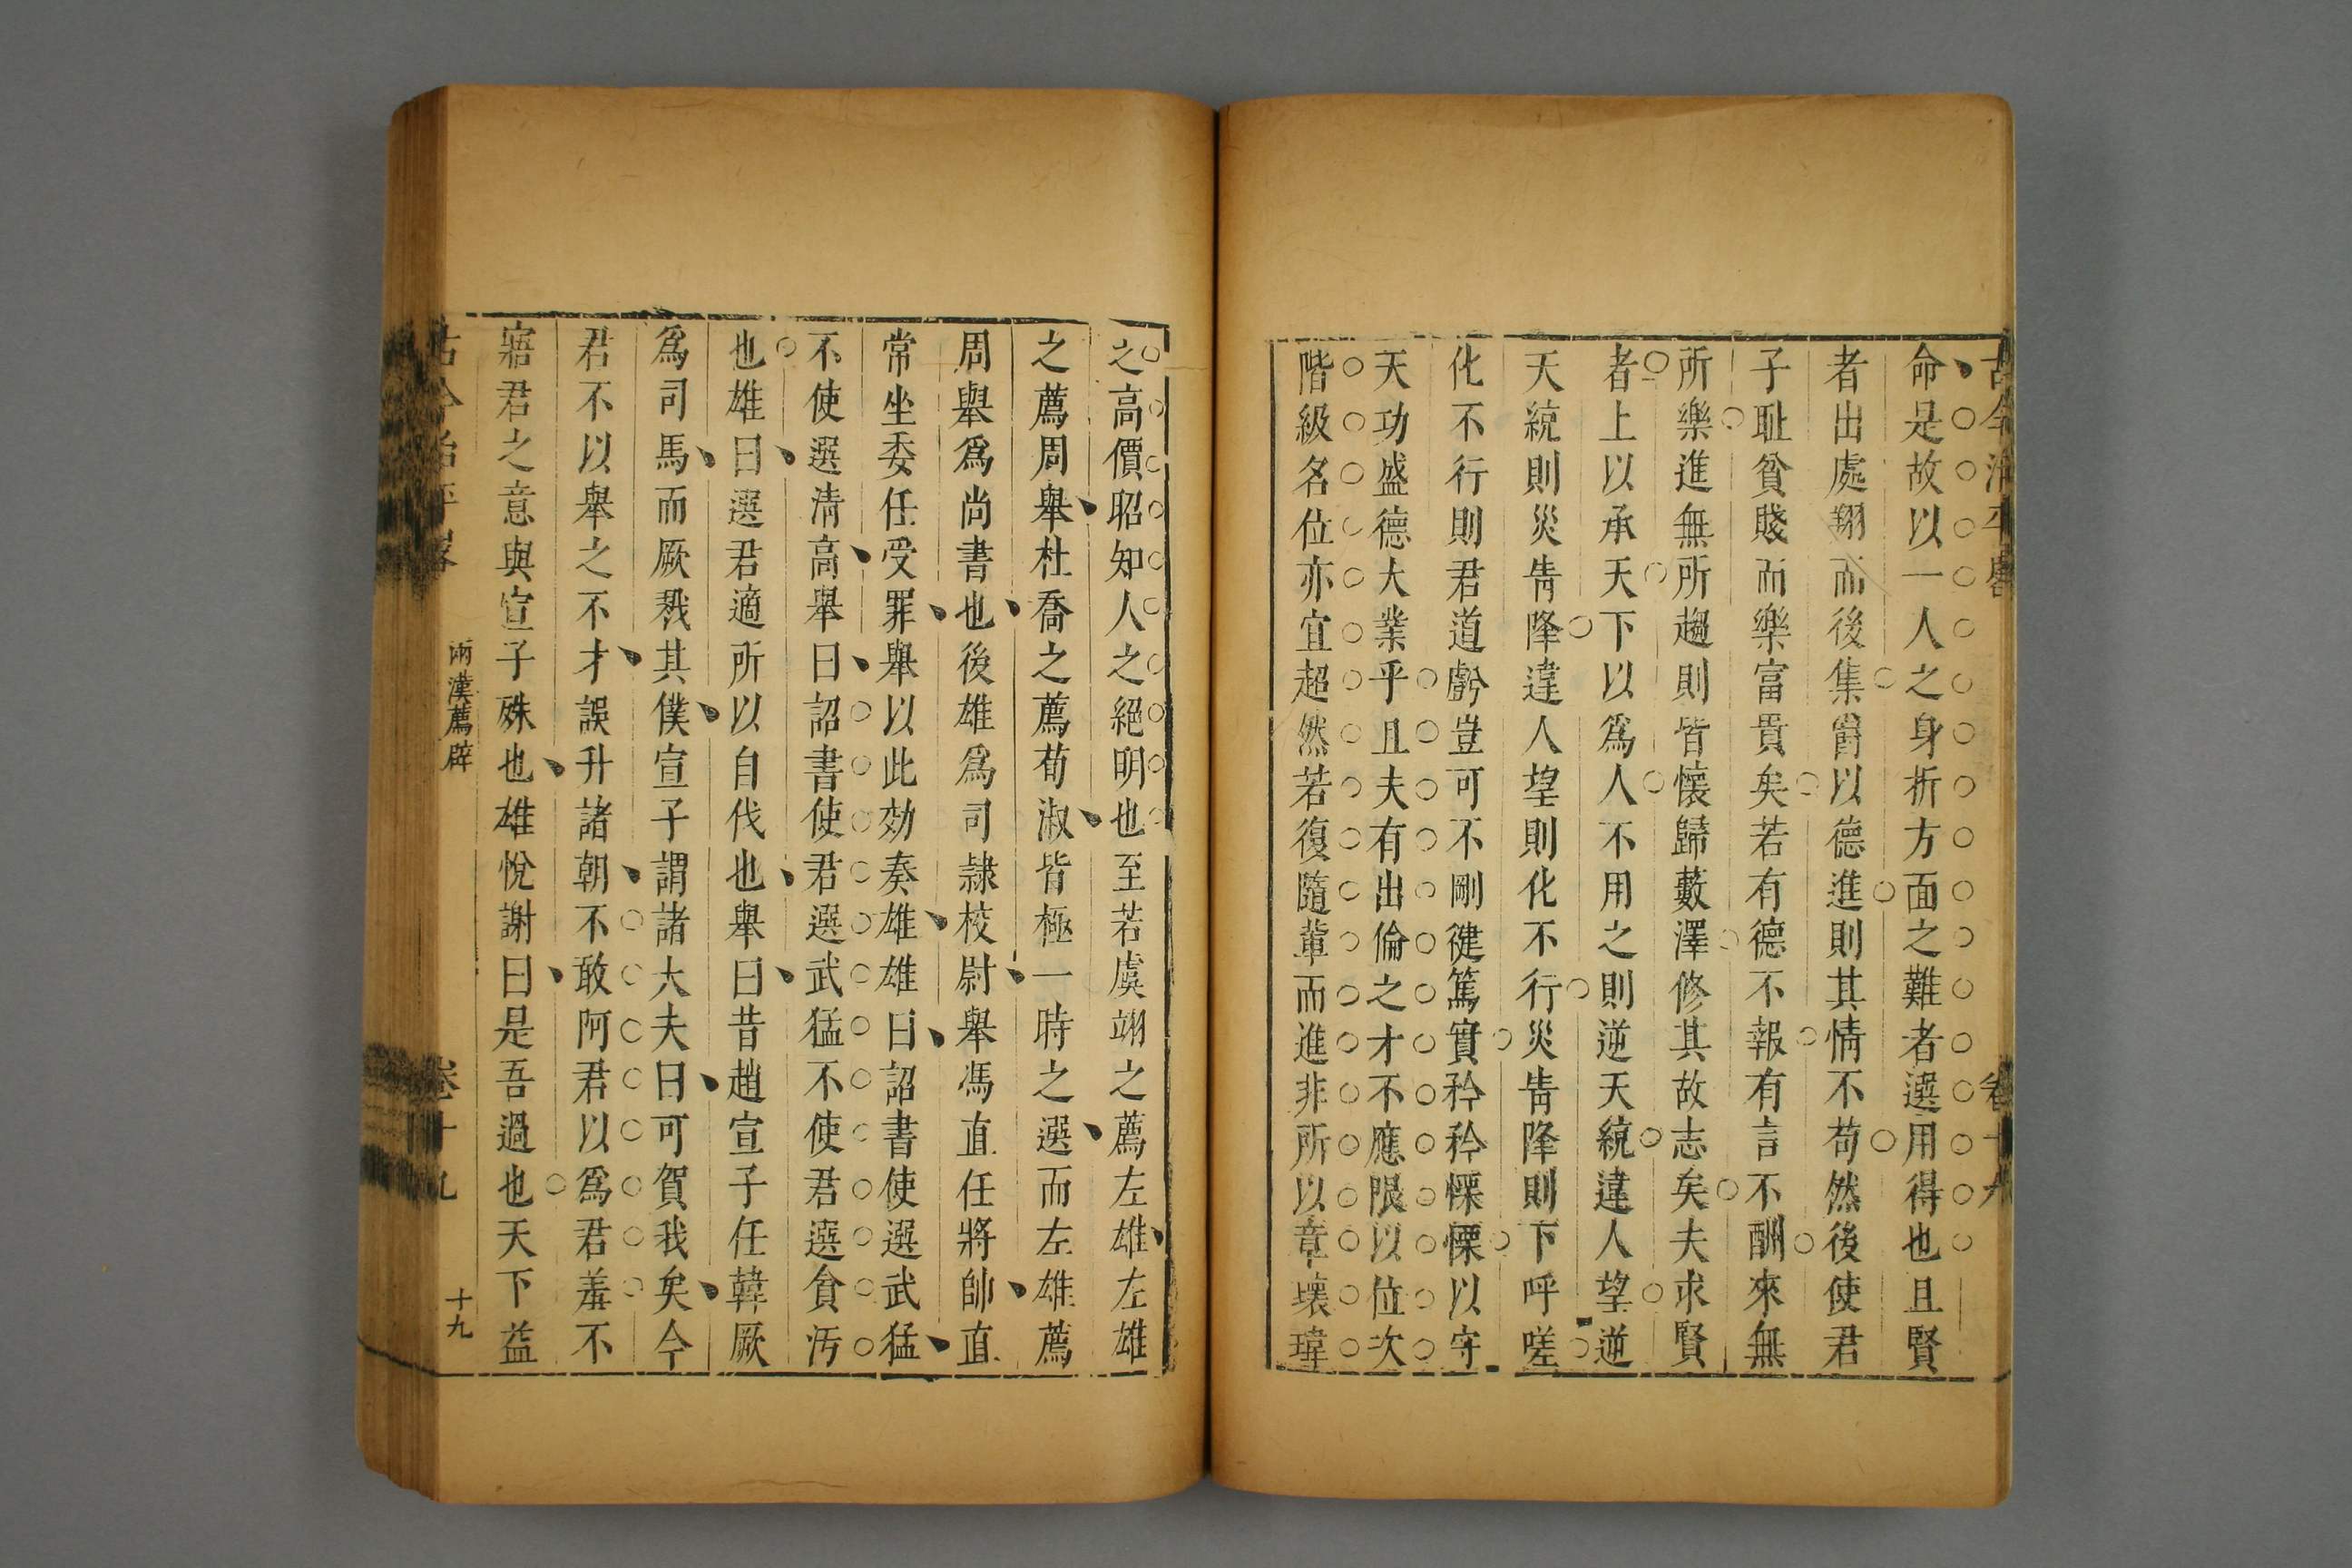 古今治平畧 卷十九
命是故以一人之身折方面之難者選用得也且賢
者出處翔而後集爵以德進則其情不苟然後使君
子耻貧賤而樂富貴矣若有德不報有言不酬來無
所樂進無所趨則皆懷歸藪澤修其故志矣夫求賢
者上以承天下以為人不用之則逆天統違人望逆
天統則災眚降違人望則化不行災眚降則下呼嗟
化不行則君道虧豈可不剛健篤實矜矜慄慄以守
天功盛德大業乎且夫有出倫之才不應限以位次
階級名位亦宜超然若復隨輩而進非所以章瓌瑋
之高價昭知人之絕明也至若虞翊之薦左雄左雄
之薦周舉杜喬之薦荀淑皆極一時之選而左雄薦
周舉爲尚書也後雄爲司隷校尉舉馮直任將帥直
常坐委任受罪舉以此劾奏雄雄曰詔書使選武猛
不使選清高舉曰詔書使君選武猛不使君選貪汚
也雄曰選君適所以自伐也舉曰昔趙宣子任韓厥
爲司馬而厥戮其僕宣子謂諸大夫曰可賀我矣今
君不以舉之不才誤升諸朝不敢阿君以爲君羞不
寤君之意與宣子殊也雄悅謝曰是吾過也天下益
古今治平畧 兩漢薦辟 卷十九 十九